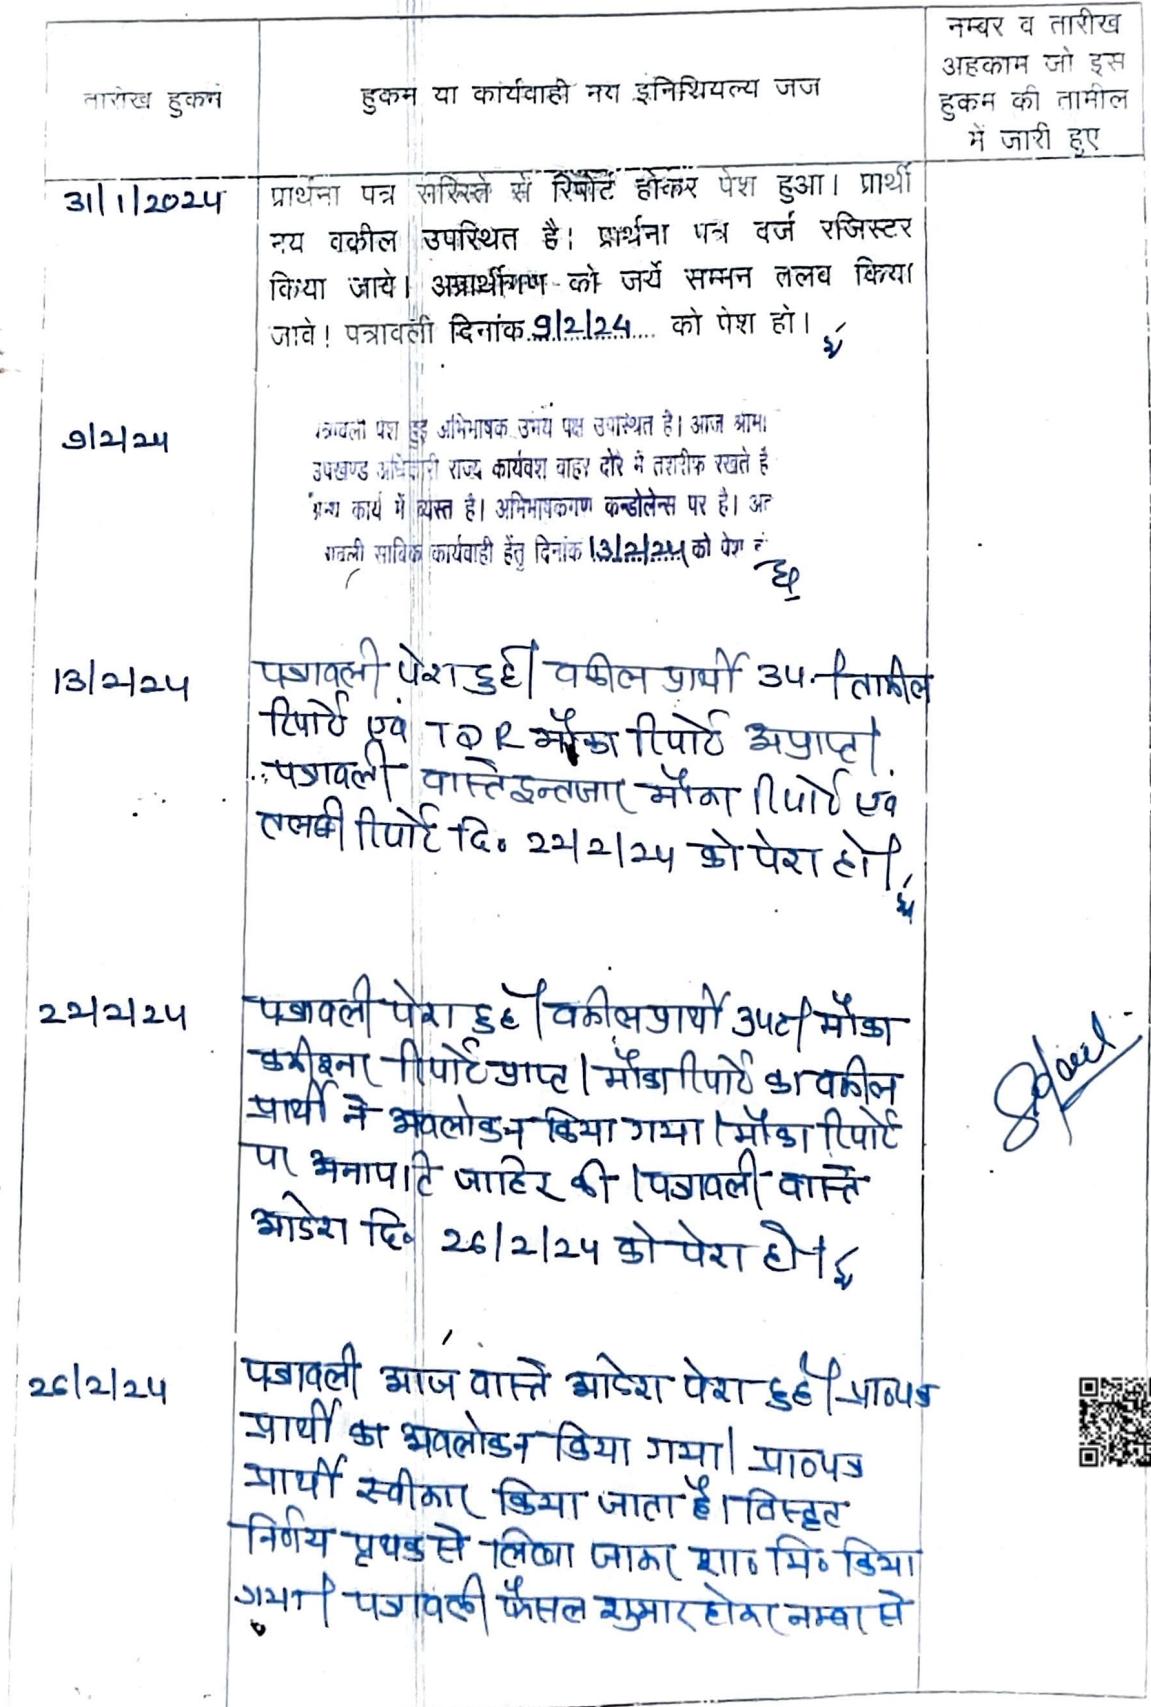 तारीख हुकम
हुकम या कार्यवाही मय इनिशियल्य जज
नम्बर व तारीख
अहकाम जो इस
हुकम की तामील
में जारी हुए
31/1/2024
प्रार्थना पत्र सरिस्ते से रिपोर्ट होकर पेश हुआ। प्रार्थी
मय वकील उपस्थित है। प्रार्थना पत्र दर्ज रजिस्टर
किया जावे। अप्रार्थीगण को जर्ये सम्मन तलब किया
जावे! पत्रावली दिनांक 9/2/24 को पेश हो।
9/2/24
पत्रावली पेश हुई अभिभाषक उभय पक्ष उपस्थित है। आज श्रीमा
उपखण्ड अधिकारी राज्य कार्यवश बाहर दौरे में तशरीफ रखते है
अन्य कार्य में व्यस्त है। अभिभाषकगण कन्डोलेन्स पर है। अत
साबिक कार्यवाही हेतु दिनांक 13/2/24 को पेश
13/2/24
पत्रावली पेश हुई। वकील प्रार्थी उप.। तामील
रिपोर्ट एवं TDR मौका रिपोर्ट अप्राप्त।
पत्रावली वास्ते इन्तजार मौका रिपोर्ट एवं
तलबी रिपोर्ट दि० 22/2/24 को पेश हो।
22/2/24
पत्रावली पेश हुई। वकील प्रार्थी उप०। मौका
कमीश्नर रिपोर्ट प्राप्त। मौका रिपोर्ट का वकील
प्रार्थी ने अवलोकन किया गया। मौका रिपोर्ट
पर अनापत्ति जाहिर की। पत्रावली वास्ते
आदेश दि० 26/2/24 को पेश हो।
26/2/24
पत्रावली आज वास्ते आदेश पेश हुई। प्रा०पत्र
प्रार्थी का अवलोकन किया गया। प्रा०पत्र
प्रार्थी स्वीकार किया जाता है। विस्तृत
निर्णय पृथक से लिखा जाकर शा० मि० किया
गया। पत्रावली फैसल शुमार होकर नम्बर से